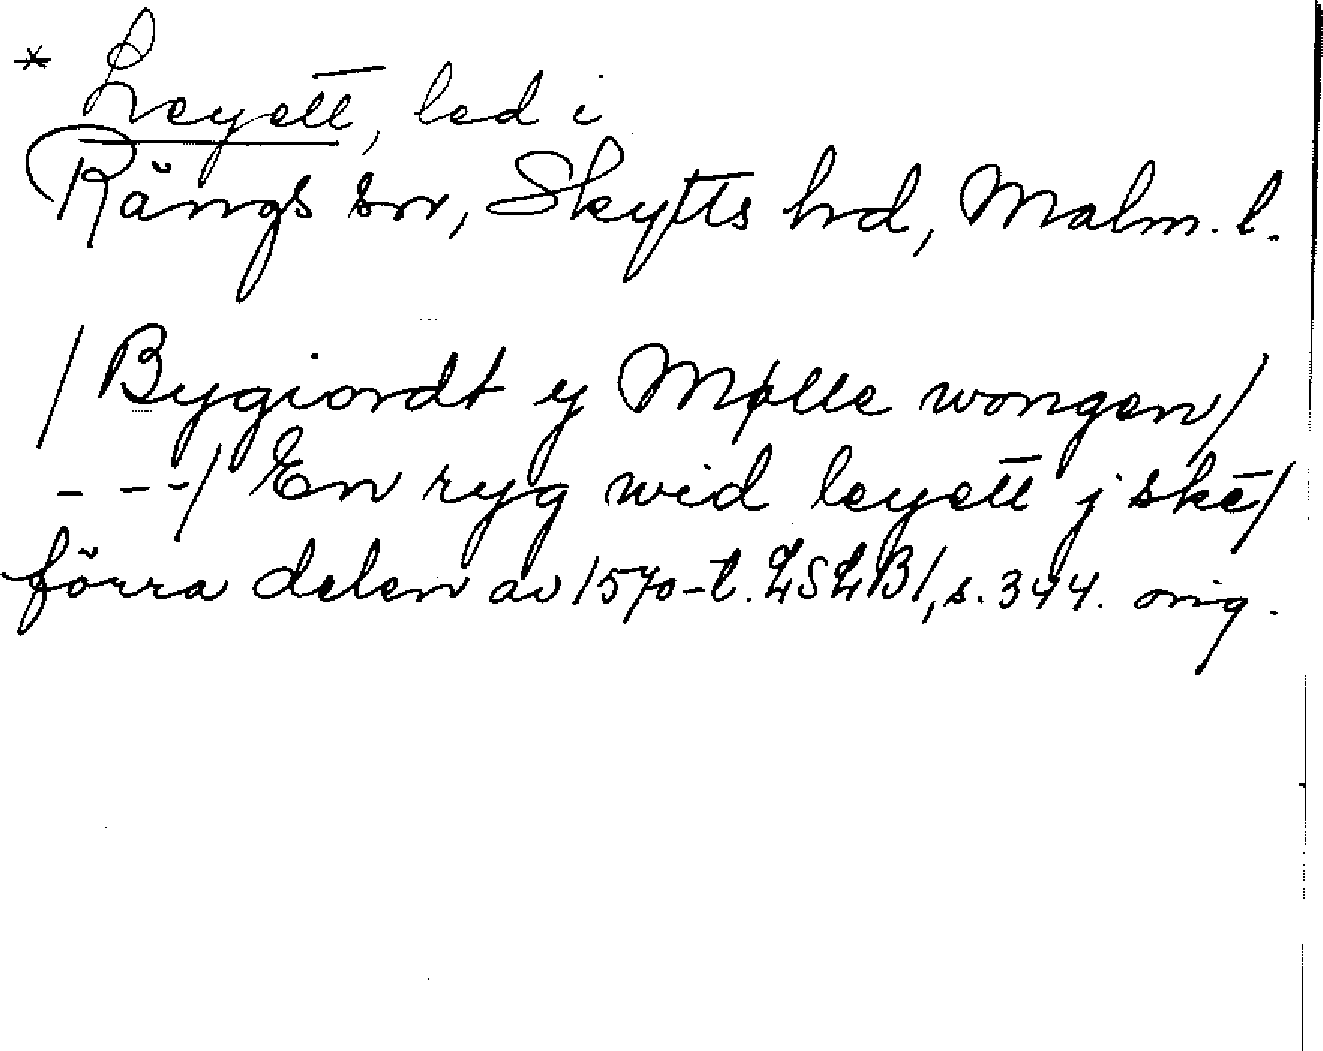 * Leyett, led i
Rängs sn, Skytts hd, Malm. l.
/ Bygiordt y Mølle wongen/
- - -/ En ryg wid leyett j skē/
förra delen av 1570-t. LSLB1, s. 344. orig.